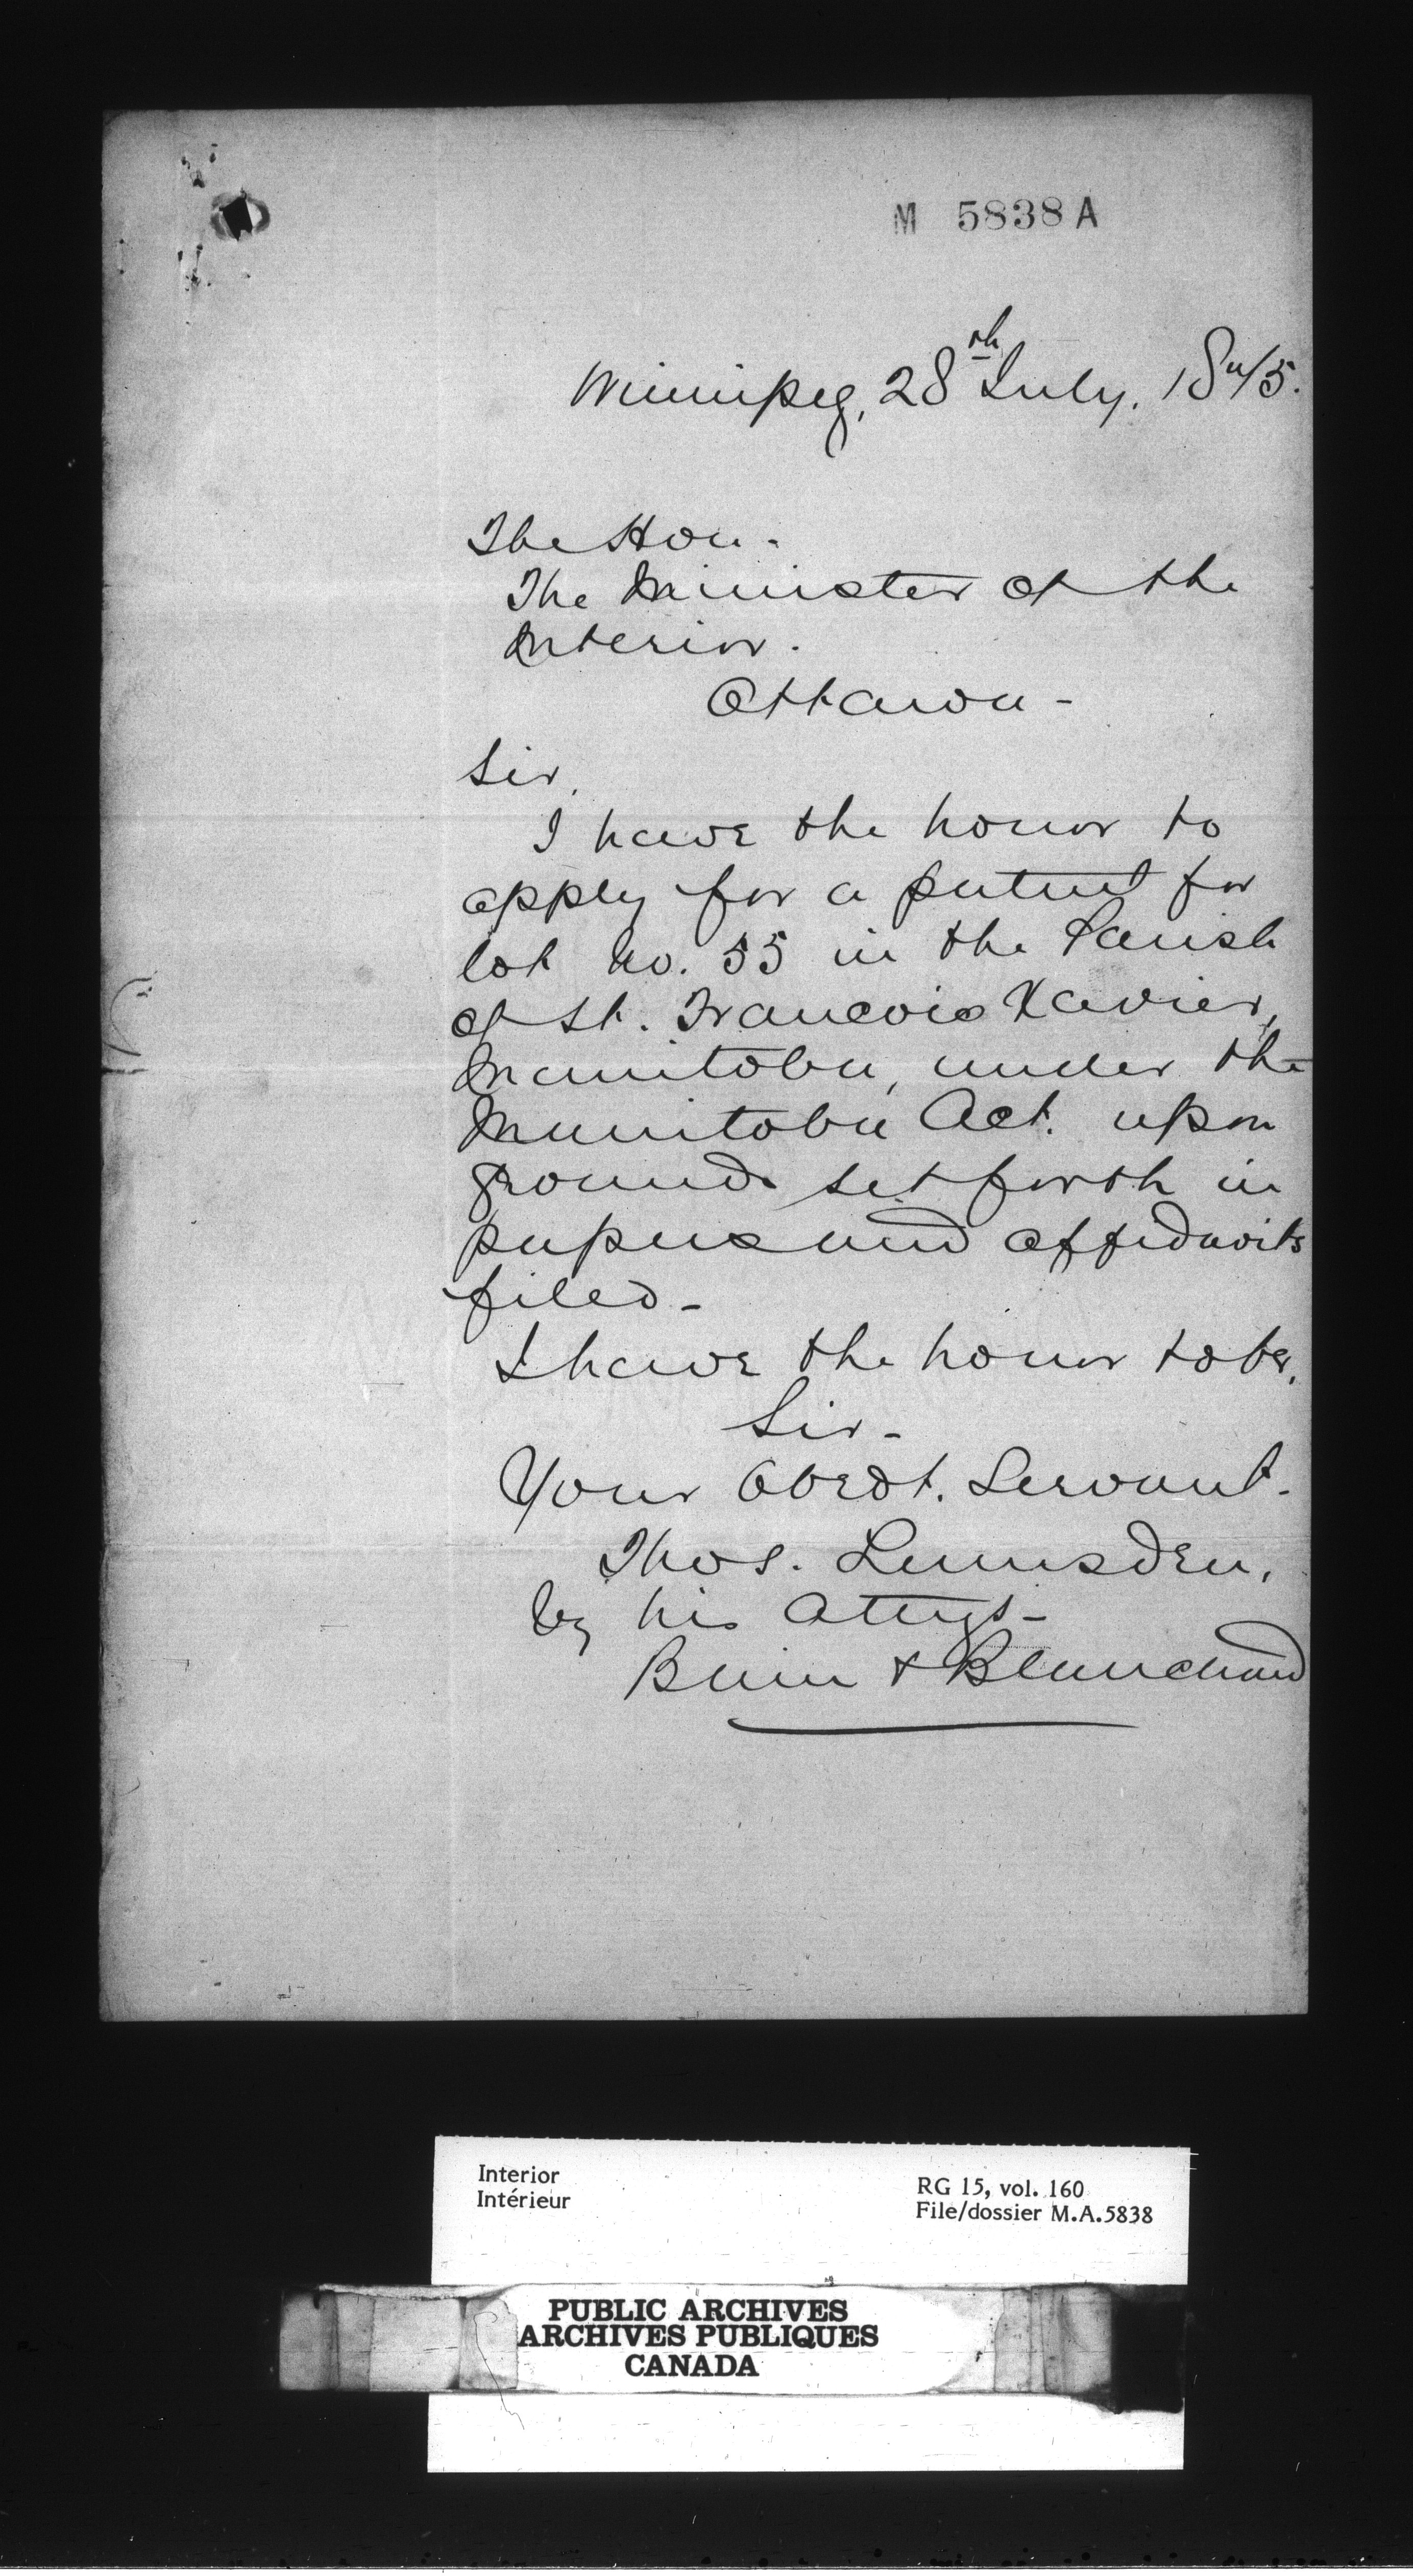 M 5838 A
Winnipeg, 28th July, 1875.
The Hon.
The Minister of the
Interior.
Ottawa -
Sir,
I have the honor to
apply for a patent for
lot No. 55 in the Parish
of St. Francois Xavier,
Manitoba, under the
Manitoba Act. upon
grounds set forth in
papers and affidavits
filed -
I have the honor to be,
Sir -
Your Obedt. Servant -
Thos. Lumsden,
by his Attys -
Bain & Blanchard
Interior
Intérieur
RG 15, vol. 160
File/dossier M.A.5838
PUBLIC ARCHIVES
ARCHIVES PUBLIQUES
CANADA